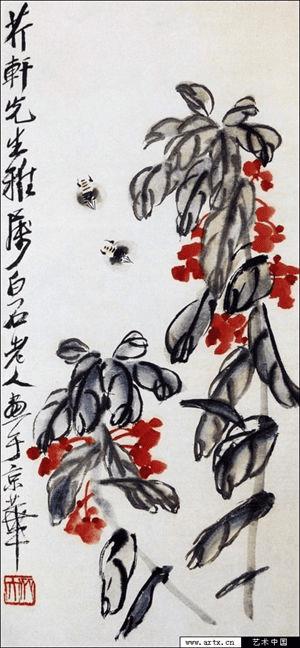 芥軒先生雅属白石老人画于京華
www.artx.cn 艺术中国